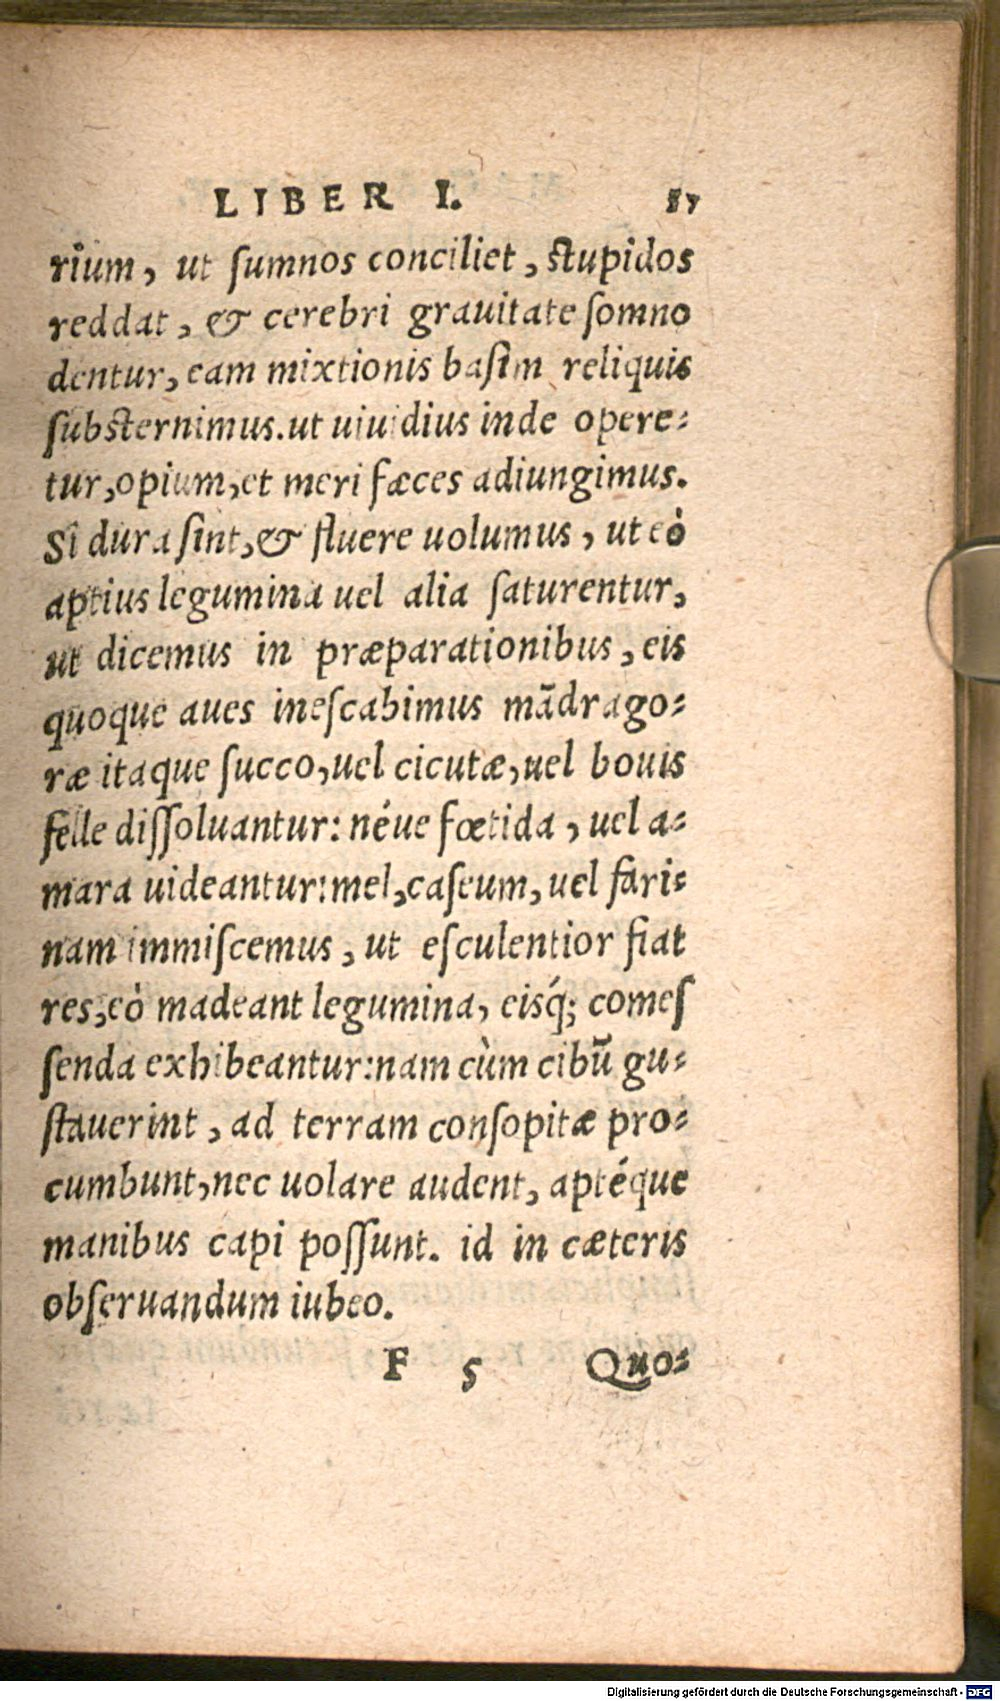 LIBER I. 87
rium, ut sumnos conciliet, stupidos
reddat, & cerebri grauitate somno
dentur, eam mixtionis basim reliquis
substernimus. ut uiuidius inde opere-
tur, opium, et meri fæces adiungimus.
Si dura sint, & fluere uolumus, ut eò
aptius legumina uel alia saturentur,
ut dicemus in præparationibus, eis
quoque aues inescabimus mãdrago-
ræ itaque succo, uel cicutæ, uel bouis
felle dissoluantur: néue fœtida, uel a-
mara uideantur: mel, caseum, uel fari-
nam immiscemus, ut esculentior fiat
res, eò madeant legumina, eisq́; comes
senda exhibeantur: nam cùm cibũ gu-
stauerint, ad terram consopitæ pro-
cumbunt, nec uolare audent, aptéque
manibus capi possunt. id in cæteris
obseruandum iubeo.
F 5 Quo-
Digitalisierung gefördert durch die Deutsche Forschungsgemeinschaft - DFG